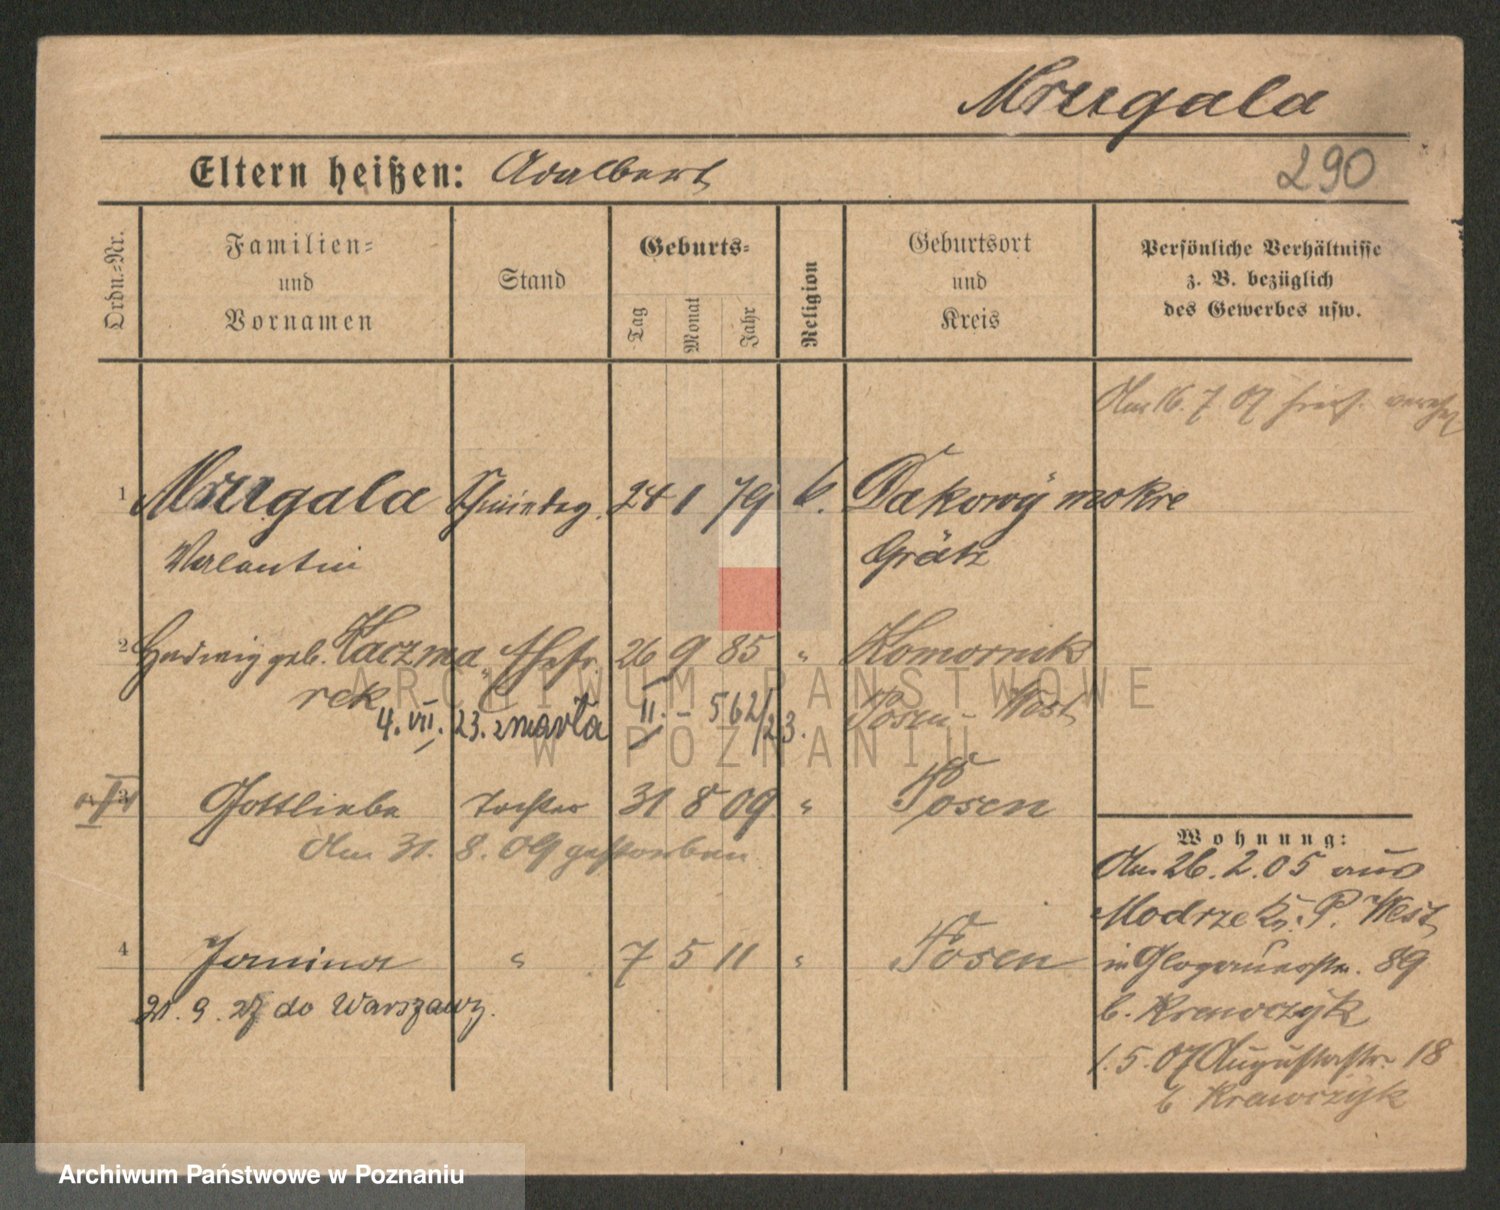 Mrugala
290
Eltern heißen: Adalbert
Ordn.=Nr.
Familien= und Vornamen
Stand
Geburts=
Tag
Monat
Jahr
Religion
Geburtsort und Kreis
Persönliche Verhältnisse z. B. bezüglich des Gewerbes usw.
Am 16. 7. 07 hies.
1 Mrugala 24 1 79 k. Dakowy mokre
Valentin Grätz
2 Hedwig geb. Kaczma Ehefr. 26 9 85 " Komornik
rek Posen - West
4. VII. 23. zmarła II. - 562/23.
3 Gottliebe Tochter 31 8 09 " Posen
Am 31. 8. 09 gestorben
4 Janina " 7 5 11 " Posen
21. 9. 27 do Warszawy.
Wohnung:
Am 26. 2. 05 aus
Modrze Kr. P. West
in Glogauerstr. 89
b. Krawczyk
1. 5. 07 Augustastr. 18
b Krawczyk
ARCHIWUM PAŃSTWOWE
W POZNANIU
Archiwum Państwowe w Poznaniu